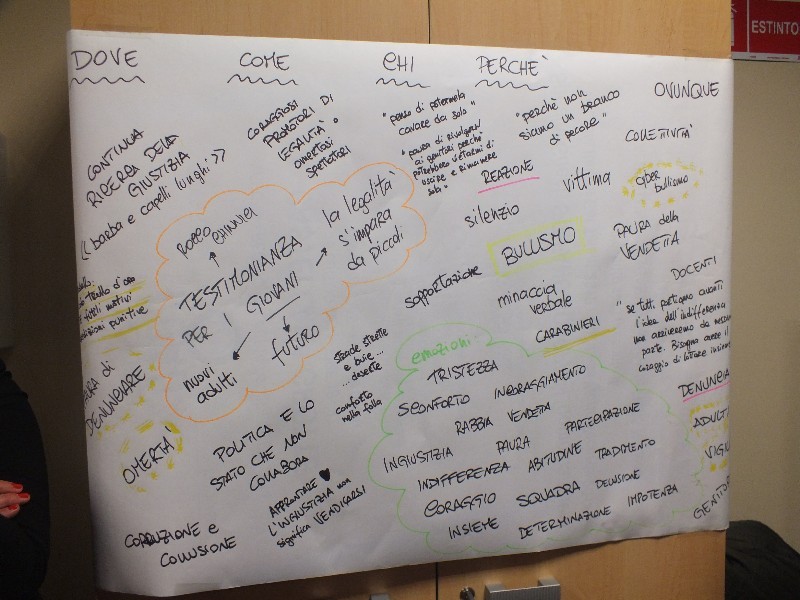 DOVE
COME
CHI
PERCHÈ
OVUNQUE
ESTINTO
CONTINUA
RICERCA DELLA
GIUSTIZIA
« barba e capelli lunghi »
CORAGGIOSI
PROMOTORI DI
LEGALITÀ o
omertosi
spettatori
"penso di potermela
cavare da solo"
"paura di rivolgersi
ai genitori perché
potrebbero vietarmi di
uscire e rimanere
solo"
"perchè non
siamo un branco
di pecore"
COLLETTIVITÀ
REAZIONE
vittima
cyber
bullismo
silenzio
BULLISMO
PAURA della
VENDETTA
ROCCO
CHINNICI
TESTIMONIANZA
PER I GIOVANI
la legalità
s'impara
da piccoli
nuovi
adulti
futuro
sopportazione
minaccia
verbale
CARABINIERI
DOCENTI
"se tutti partiamo avanti
l'idea dell'indifferenza
non arriveremo da nessuna
parte. Bisogna avere il
coraggio di lottare insieme
futili motivi
punitive
DENUNCIARE
OMERTÀ
STRADE STRETTE
e buie...
...deserte
conforto
nella folla
POLITICA E LO
STATO CHE NON
COLLABORA
AFFRONTARE
L'INGIUSTIZIA non
significa VENDICARSI
CORRUZIONE e
COLLUSIONE
emozioni
TRISTEZZA
SCONFORTO
INCORAGGIAMENTO
RABBIA
VENDETTA
PARTECIPAZIONE
INGIUSTIZIA
PAURA
INDIFFERENZA
ABITUDINE
TRADIMENTO
CORAGGIO
SQUADRA
DELUSIONE
INSIEME
DETERMINAZIONE
IMPOTENZA
DENUNCIA
ADULTI
VIGILI
GENITOR